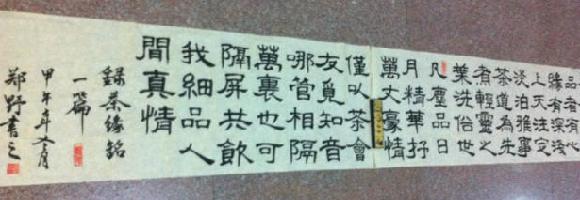 品者有心
緣有深淺
上天注定
淡泊雅事
茶道為先
煮輕靈之
葉洗俗世
凡塵品日
月精華抒
萬丈豪情
僅以茶會
友覓知音
哪管相隔
萬裏也可
隔屏共飲
我細品人
間真情
錄茶緣銘
一篇
甲午年 月
郑野書之